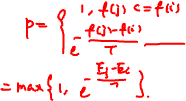 P = { 1, f(j) <= f(i)
e^{-\frac{f(j)-f(i)}{T}}
= max{1, e^{-\frac{Ej-Ei}{T}}}.